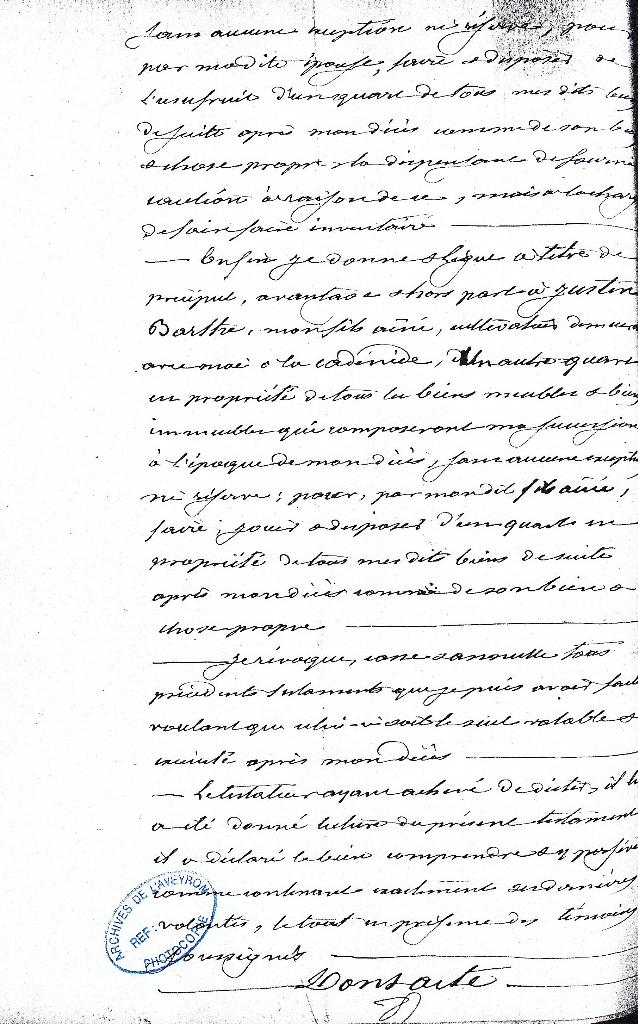 sans aucune exception ni réserve, pour
par madite épouse, faire & disposer de
l'usufruit d'un quart de tous mes dits
de suite après mon décès comme de son
& chose propre, la dispensant de fournir
caution à raison de ce, mais à la charge
de faire faire inventaire
— Enfin je donne & lègue à titre de
préciput, avantage & hors part à Justin
Barthe, mon fils aîné, cultivateur
avec moi à la, Un autre quart
en propriété de tous les biens meubles &
immeubles qui composeront ma succession
à l'époque de mon décès, sans aucune
ni réserve; pour, par mon dit fils aîné,
faire, jouir & disposer d'un quart en
propriété de tous mes dits biens de suite
après mon décès comme de son bien &
chose propre
— Je révoque, casse & annulle tous
précédents testaments que je puis avoir fait
voulant que celui-ci soit le seul valable &
exécuté après mon décès
— Le testateur ayant achevé de dicter, il
a été donné lecture du présent testament
il a déclaré le bien comprendre & y persévérer
comme contenant exactement ses dernières
volontés, le tout en présence des témoins
soussignés
Dont acte
ARCHIVES DE L'AVEYRON
REF:
PHOTOCOPIE